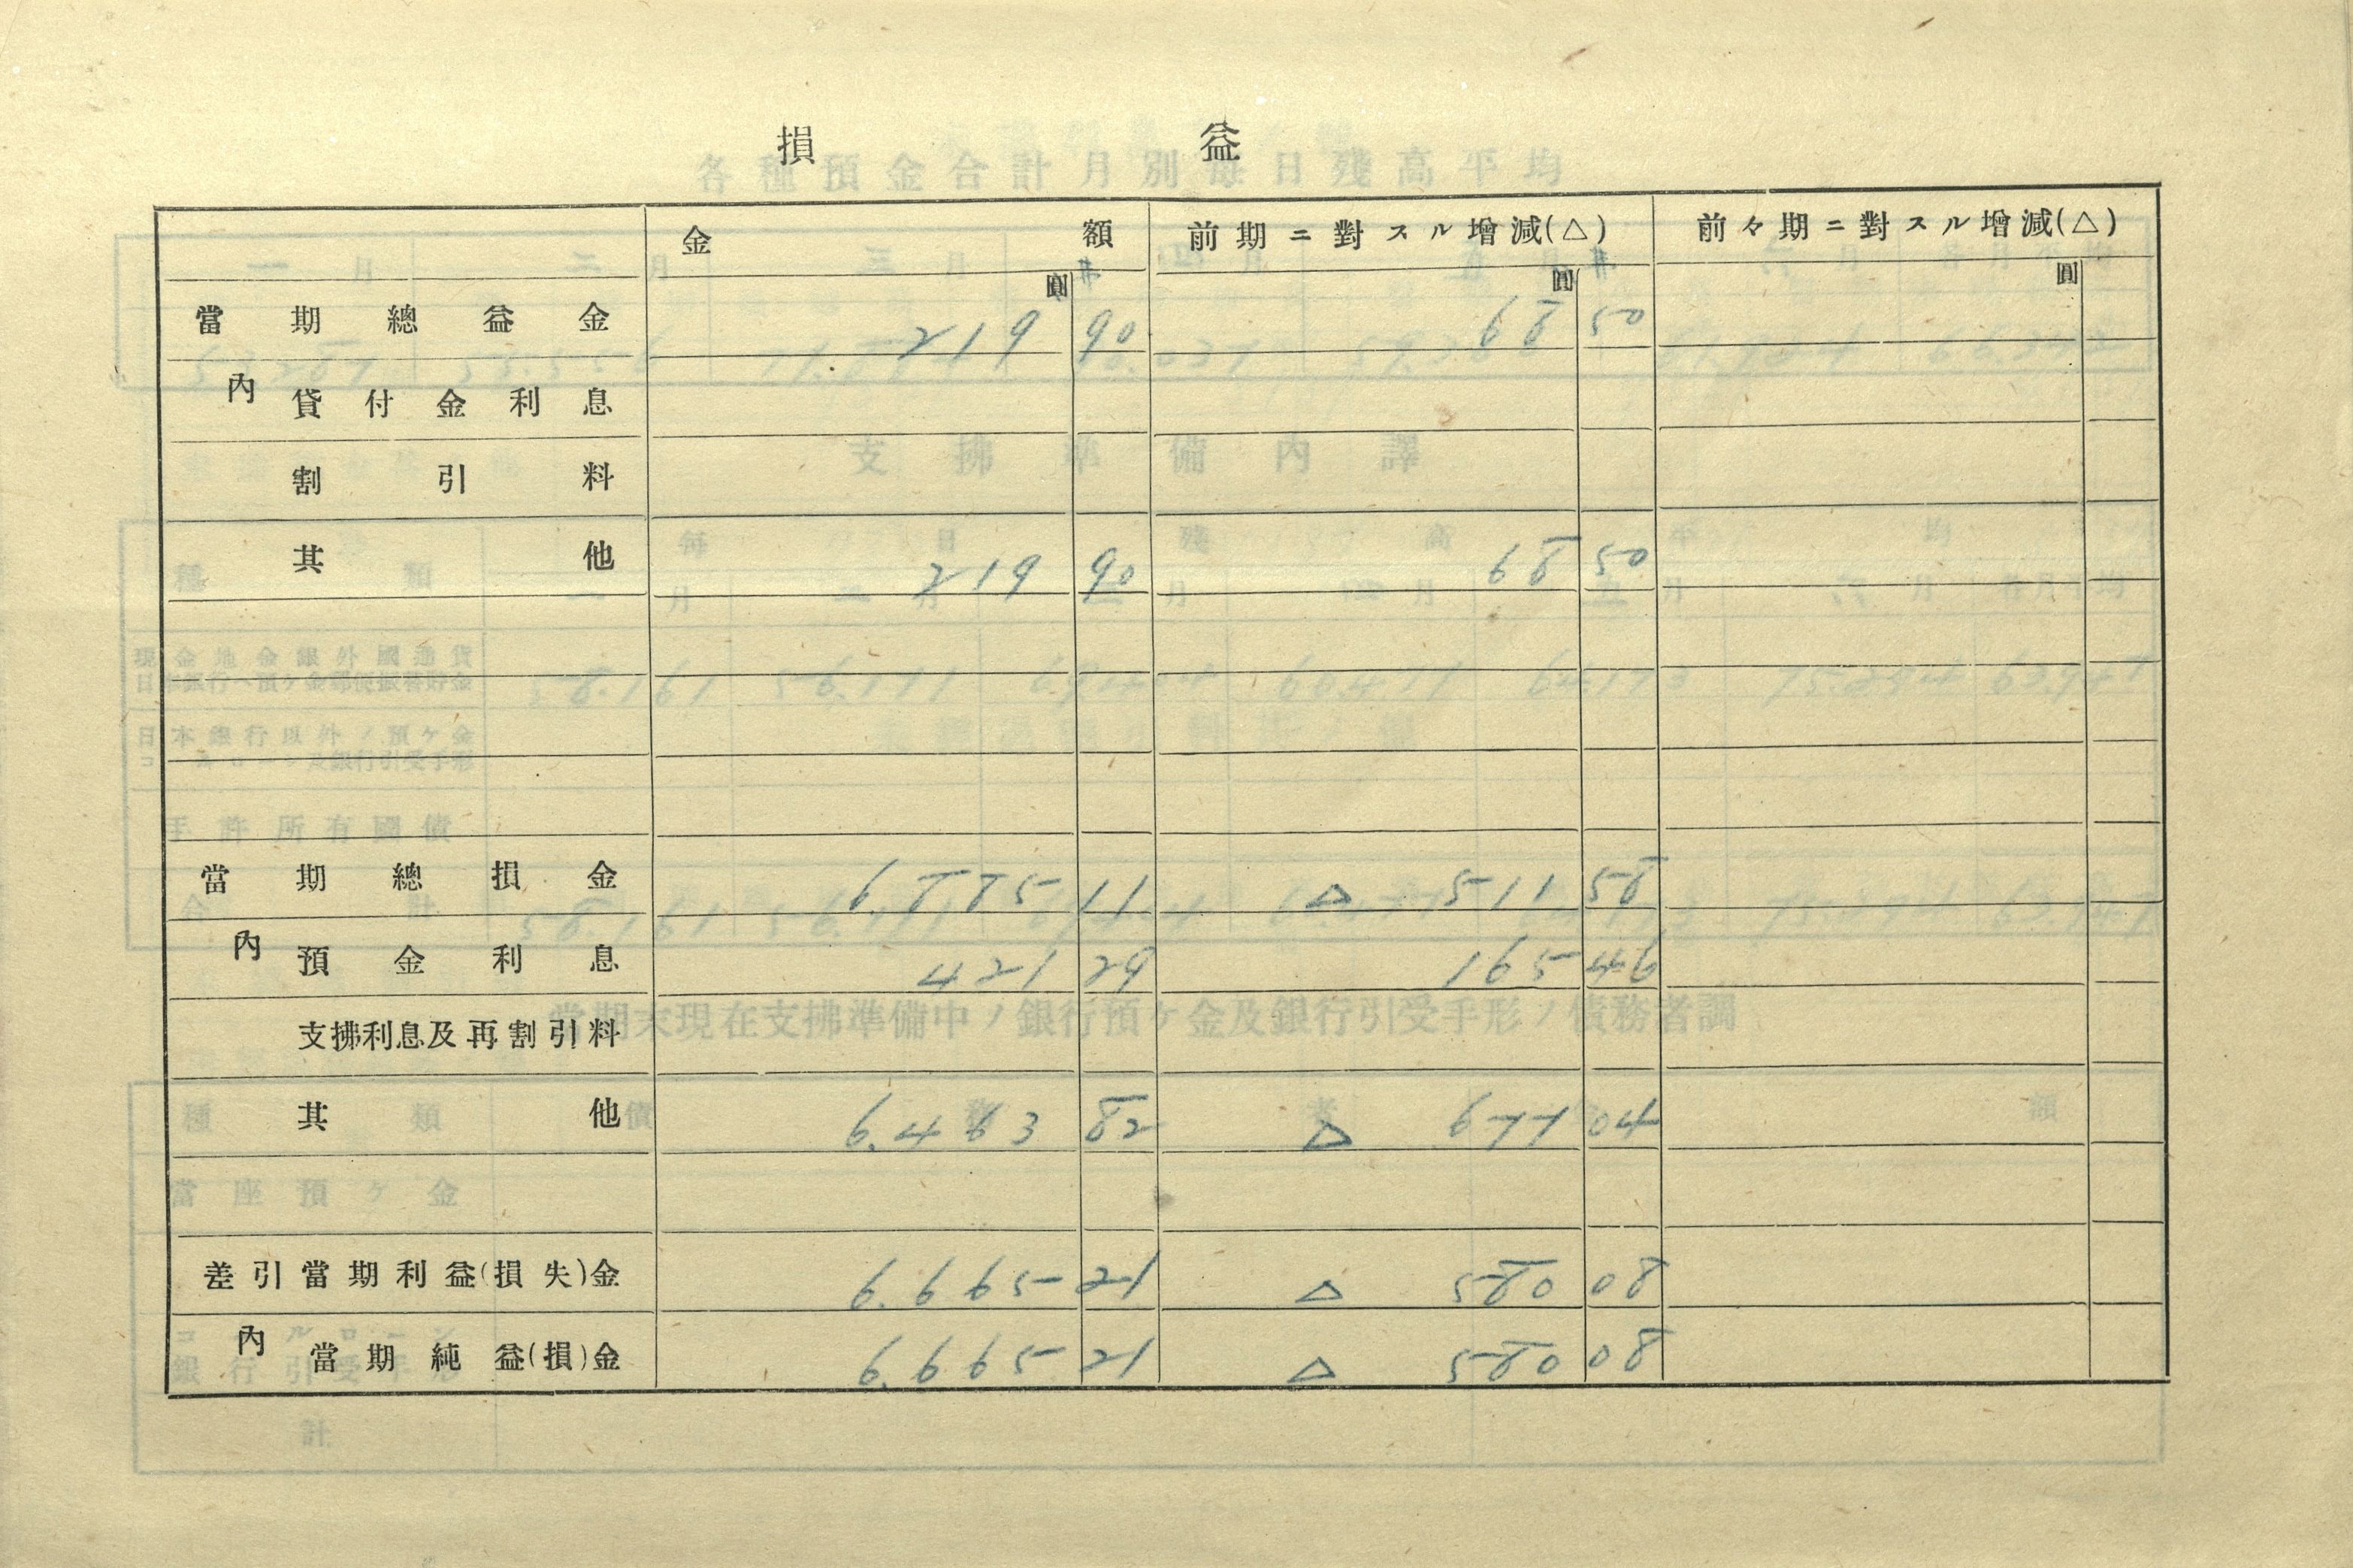 損益
金額 前期ニ對スル增減(△) 前々期ニ對スル增減(△)
圓 圓 圓
當期總益金 219 90 68 50
內 貸付金利息
割引料
其他 219 90 68 50
當期總損金 6,885 11 △ 511 58
內 預金利息 421 29 165 46
支拂利息及再割引料
其他 6.463 82 △ 677 04
差引當期利益(損失)金 6.665 21 △ 580 08
內 當期純益(損)金 6.665 21 △ 580 08